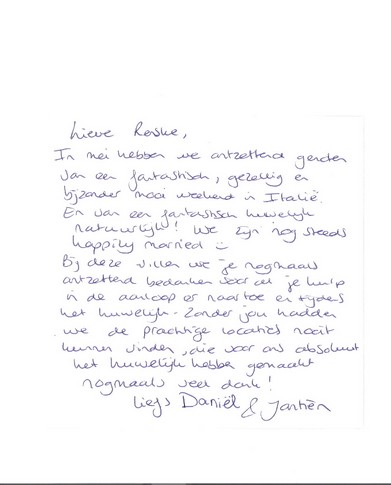 Lieve Renske,
In mei hebben we ontzettend genoten
van een fantastisch, gezellig en
bijzonder mooi weekend in Italië.
En van een fantastisch huwelijk
natuurlijk! We zijn nog steeds
happily married :)
Bij deze willen we je nogmaals
ontzettend bedanken voor al je hulp
in de aanloop er naartoe en tijdens
het huwelijk. Zonder jou hadden
we de prachtige locaties nooit
kunnen vinden, die voor ons absoluut
het huwelijk hebben gemaakt
nogmaals veel dank!
Liefs Daniël & Jantien